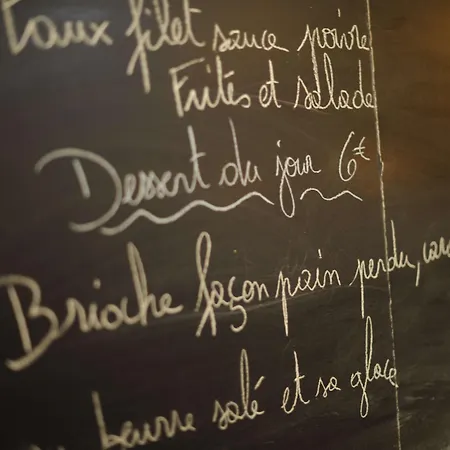 Faux filet sauce poivre
Frites et salade
Dessert du jour 6€
Brioche façon pain perdu,
beurre salé et sa glace